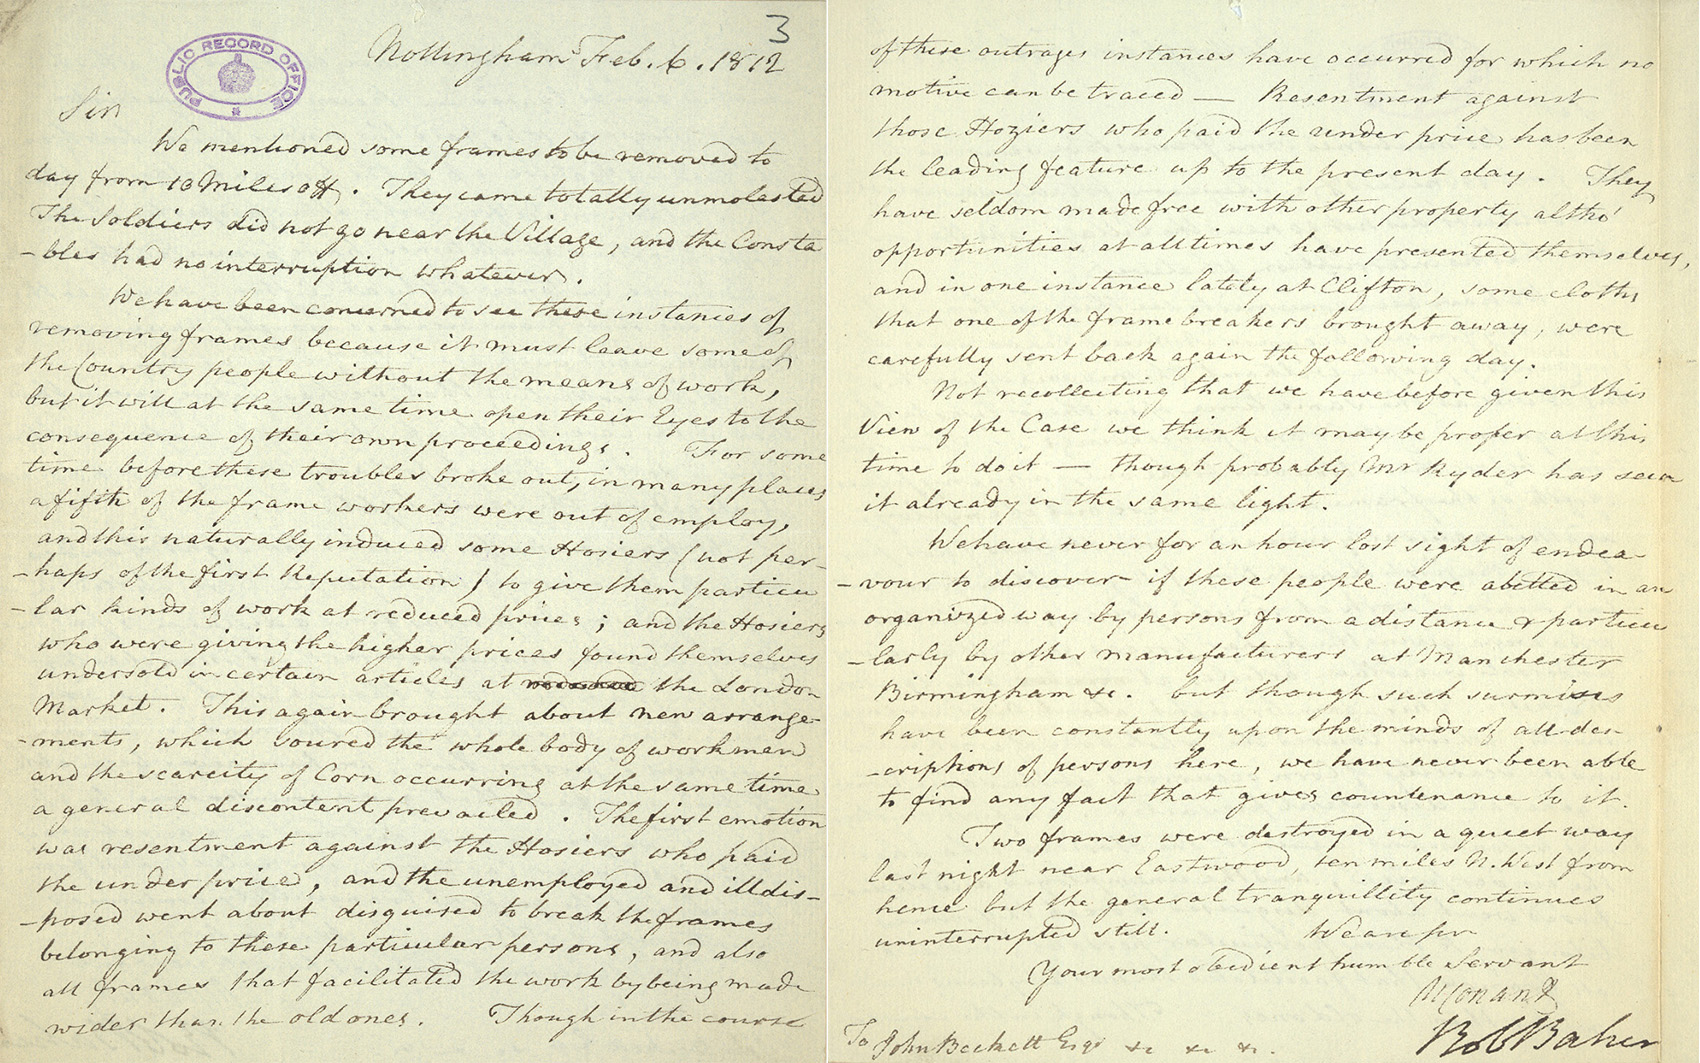 3
PUBLIC RECORD OFFICE
Nottingham Feb. 6. 1812
Sir
We mentioned some frames to be removed to
day from 10 Miles off. They came totally unmolested
The Soldiers did not go near the Village, and the Consta
-bles had no interruption whatever.
We have been concerned to see these instances of
removing frames because it must leave some of
the Country people without the means of work,
but it will at the same time open their Eyes to the
consequence of their own proceedings. For some
time before these troubles broke out, in many places
a fifth of the frame workers were out of employ,
and this naturally induced some Hosiers (not per-
-haps of the first Reputation) to give them particu
-lar kinds of work at reduced prices; and the Hosiers
who were giving the higher prices found themselves
undersold in certain articles at the London
Market. This again brought about new arrange-
-ments, which soured the whole body of workmen
and the scarcity of Corn occurring at the same time
a general discontent prevailed. The first emotion
was resentment against the Hosiers who paid
the under price, and the unemployed and ill dis-
-posed went about disguised to break the frames
belonging to these particular persons, and also
all frames that facilitated the work by being made
wider than the old ones. Though in the course
of these outrages instances have occurred for which no
motive can be traced — Resentment against
those Hoziers who paid the under price has been
the leading feature up to the present day. They
have seldom made free with other property altho'
opportunities at all times have presented themselves,
and in one instance lately at Clifton, some cloths
that one of the frame breakers brought away, were
carefully sent back again the following day.
Not recollecting that we have before given this
View of the Case we think it may be proper at this
time to do it — though probably Mr Ryder has seen
it already in the same light.
We have never for an hour lost sight of endea-
-vour to discover if these people were abetted in an
organized way by persons from a distance & particu
-larly by other manufacturers at Manchester
Birmingham &c. but though such surmises
have been constantly upon the minds of all des-
-criptions of persons here, we have never been able
to find any fact that gives countenance to it.
Two frames were destroyed in a quiet way
last night near Eastwood, ten miles N. West from
hence but the general tranquillity continues
uninterrupted still. We are Sir
Your most obedient humble Servant
N Conant
Rob Baker
To John Beckett Esqr &c &c &c.